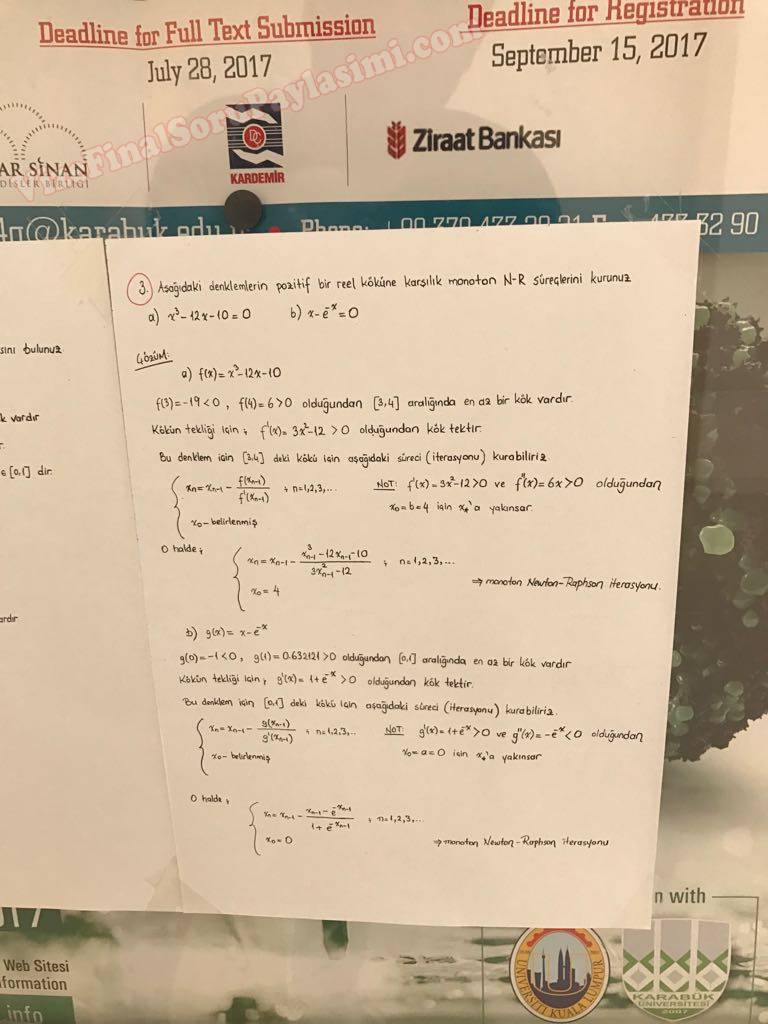 Deadline for Full Text Submission
July 28, 2017
Deadline for Registration
September 15, 2017
VizeFinalSoruPaylasimi.com
AR SİNAN
DİŞLER BİRLİĞİ
KARDEMİR
Ziraat Bankası
@karabuk.edu
Phone:
32 90
3. Aşağıdaki denklemlerin pozitif bir reel köküne karşılık monoton N-R süreçlerini kurunuz
a) x³-12x-10=0 b) x-e⁻ˣ=0
Çözüm:
a) f(x)=x³-12x-10
f(3)=-19<0, f(4)=6>0 olduğundan [3,4] aralığında en az bir kök vardır.
Kökün tekliği için; f'(x)=3x²-12>0 olduğundan kök tektir.
Bu denklem için [3,4] deki kökü için aşağıdaki süreci (iterasyonu) kurabiliriz.
xₙ=xₙ₋₁ - f(xₙ₋₁)/f'(xₙ₋₁) ; n=1,2,3,... NOT: f'(x)=3x²-12>0 ve f''(x)=6x>0 olduğundan
x₀-belirlenmiş
x₀=b=4 için x*'a yakınsar.
O halde;
xₙ=xₙ₋₁ - (x³ₙ₋₁-12xₙ₋₁-10)/(3x²ₙ₋₁-12) ; n=1,2,3,...
x₀=4
⇒ monoton Newton-Raphson iterasyonu.
b) g(x)= x-e⁻ˣ
g(0)=-1<0, g(1)=0.632121>0 olduğundan [0,1] aralığında en az bir kök vardır
Kökün tekliği için; g'(x)=1+e⁻ˣ>0 olduğundan kök tektir.
Bu denklem için [0,1] deki kökü için aşağıdaki süreci (iterasyonu) kurabiliriz.
xₙ=xₙ₋₁ - g(xₙ₋₁)/g'(xₙ₋₁) ; n=1,2,3,.. NOT: g'(x)=1+e⁻ˣ>0 ve g''(x)=-e⁻ˣ<0 olduğundan
x₀-belirlenmiş
x₀=a=0 için x*'a yakınsar
O halde;
xₙ=xₙ₋₁ - (xₙ₋₁-e^(-xₙ₋₁))/(1+e^(-xₙ₋₁)) ; n=1,2,3,...
x₀=0
⇒ monoton Newton-Raphson iterasyonu
sını bulunuz
k vardır
∈[0,1] dir.
ardır
n with
Web Sitesi
formation
info
UNIVERSITI KUALA LUMPUR
KARABÜK
ÜNİVERSİTESİ
2007